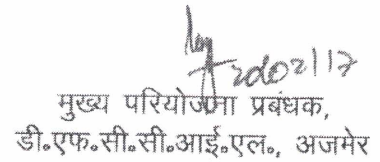 मुख्य परियोजना प्रबंधक,
डी॰एफ॰सी॰सी॰आई॰एल॰, अजमेर